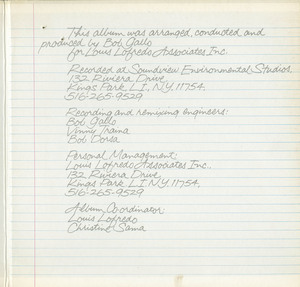 This album was arranged, conducted, and
produced by Bob Gallo
for Louis Lofredo Associates Inc.
Recorded at Soundview Environmental Studios
132 Riviera Drive
Kings Park L.I., N.Y 11754
516-265-9529
Recording and remixing engineers:
Bob Gallo
Vinnie Traina
Bob Dorsa
Personal Management:
Louis Lofredo Associates Inc.
132 Riviera Drive
Kings Park L.I. N.Y 11754
516-265-9529
Album Co-ordinator:
Louis Lofredo
Christine Sama